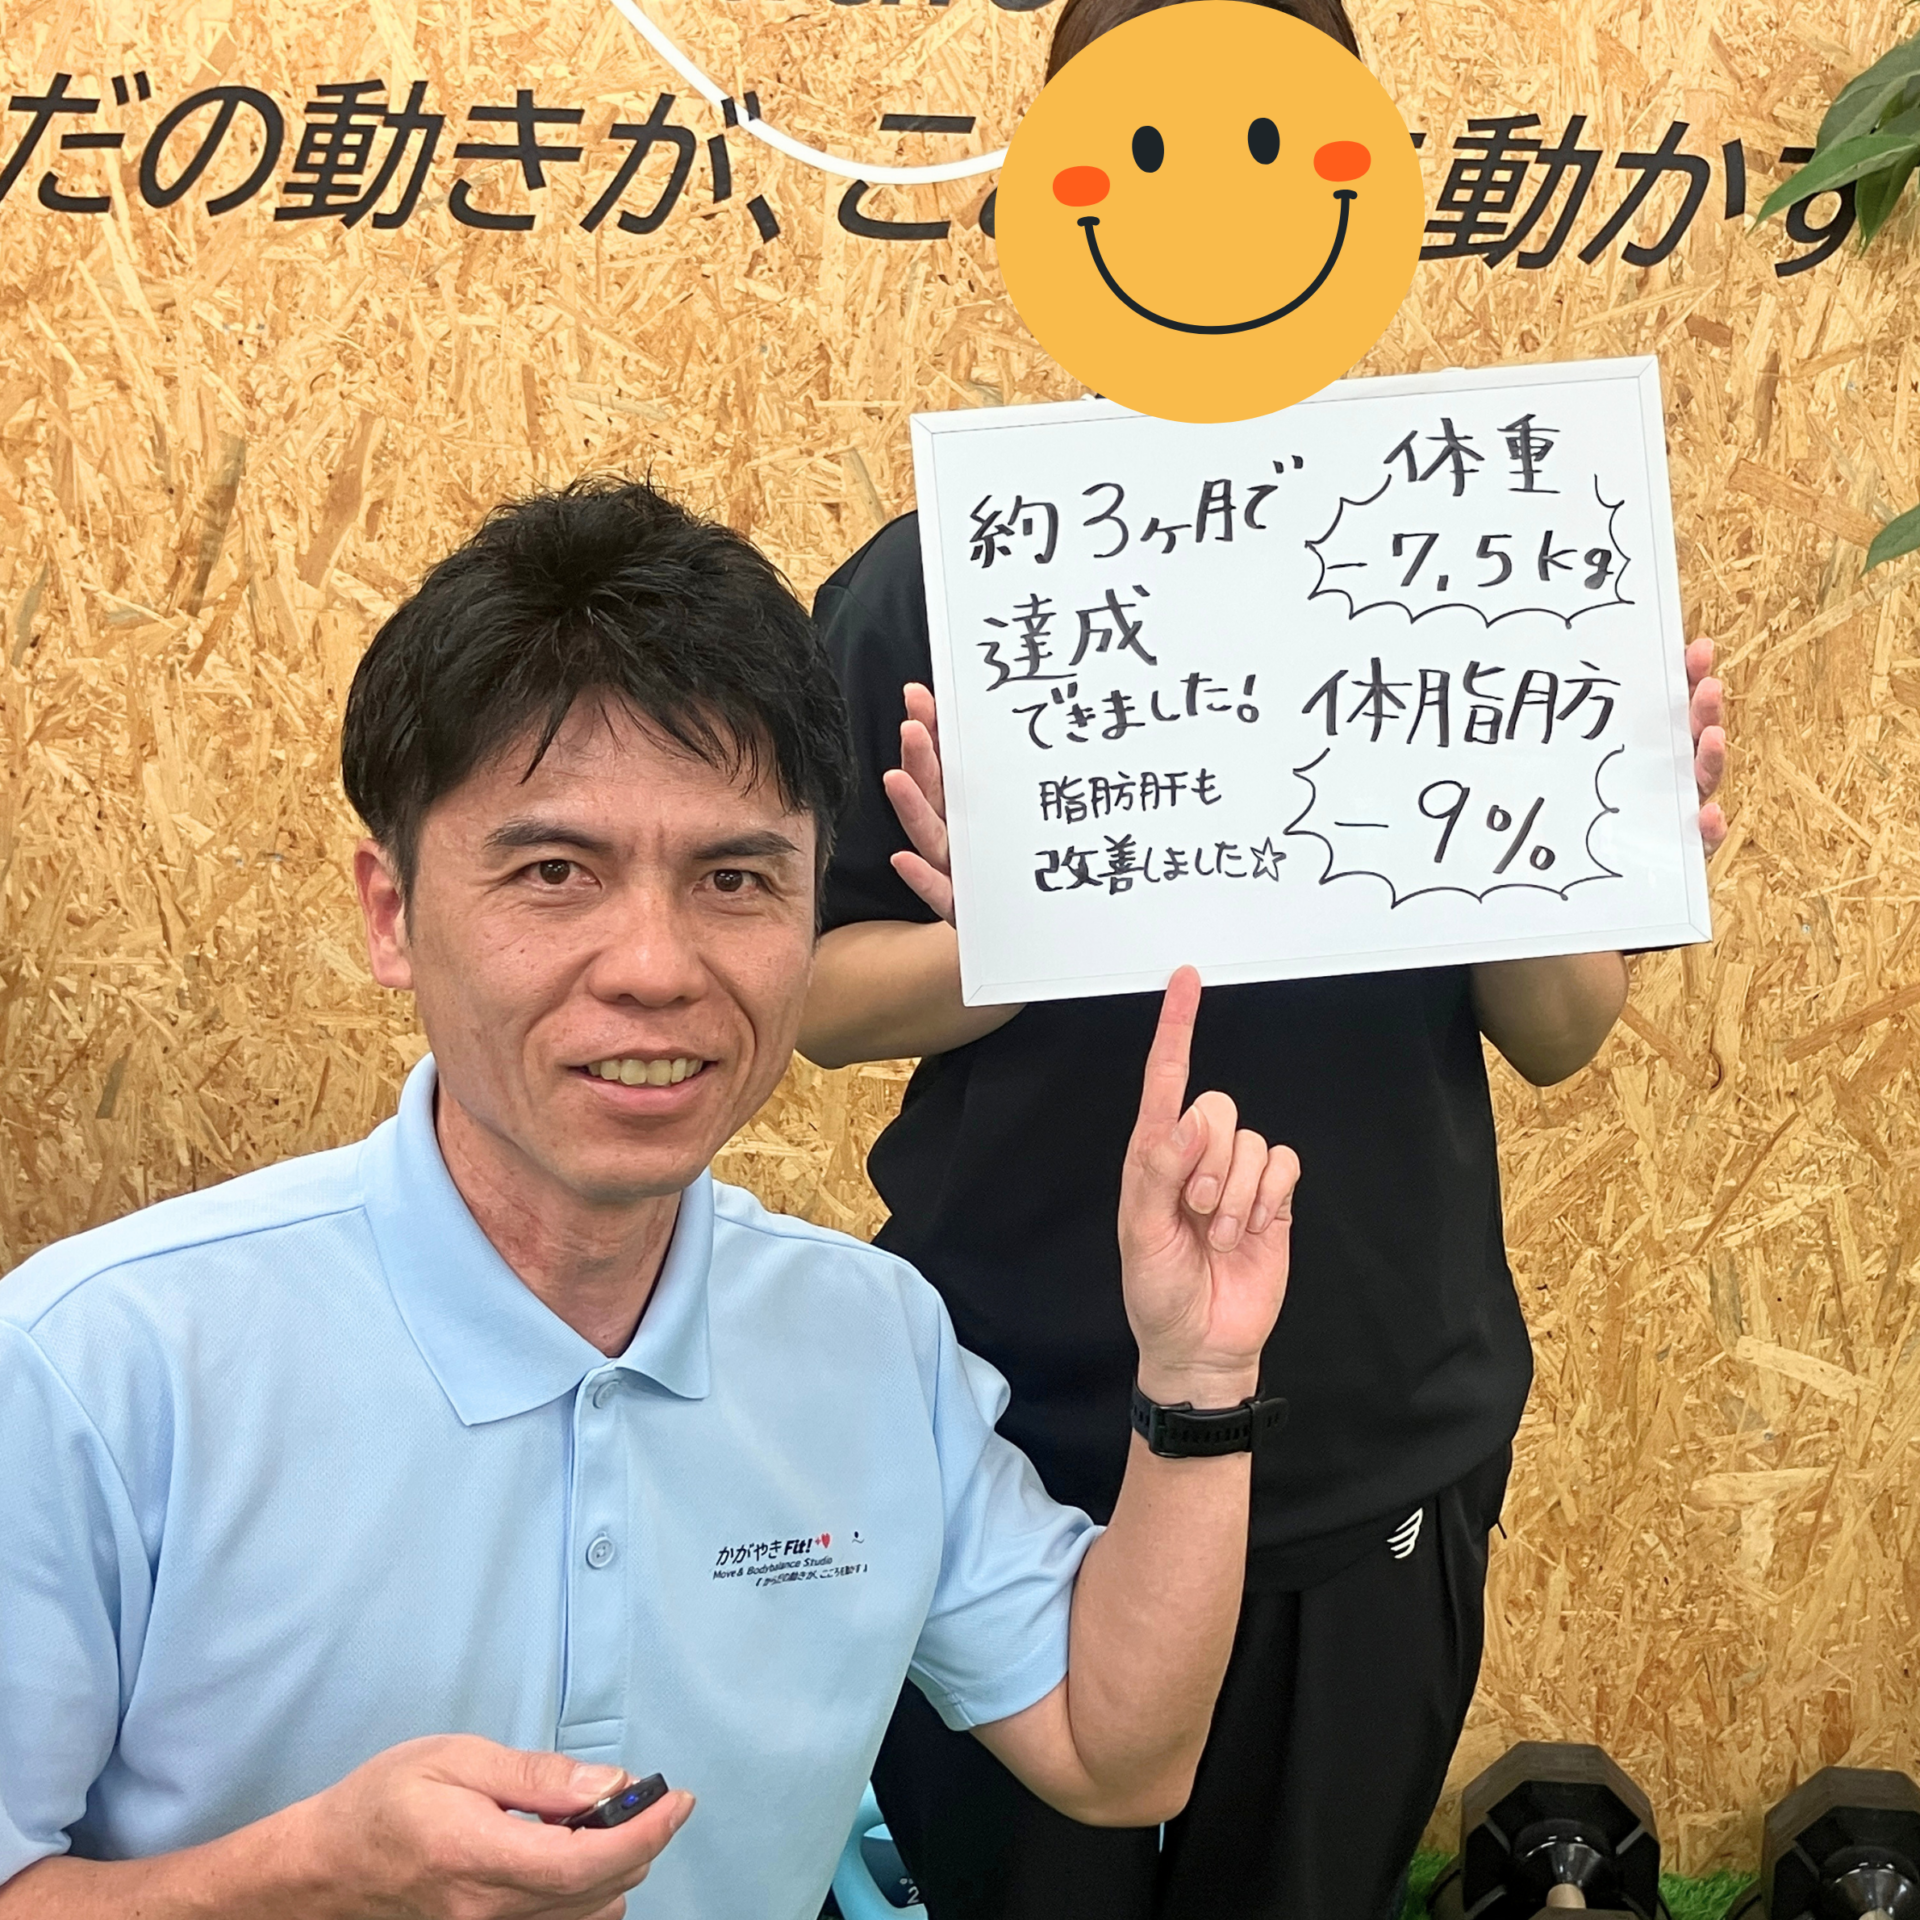 だの動きが、こ
動かす
約3ヶ月で
達成
できました!
脂肪肝も
改善しました☆
体重
-7.5kg
体脂肪
-9%
かがやきFit!
Move & Bodybalance Studio
『からだの動きが、こころを動かす』
2